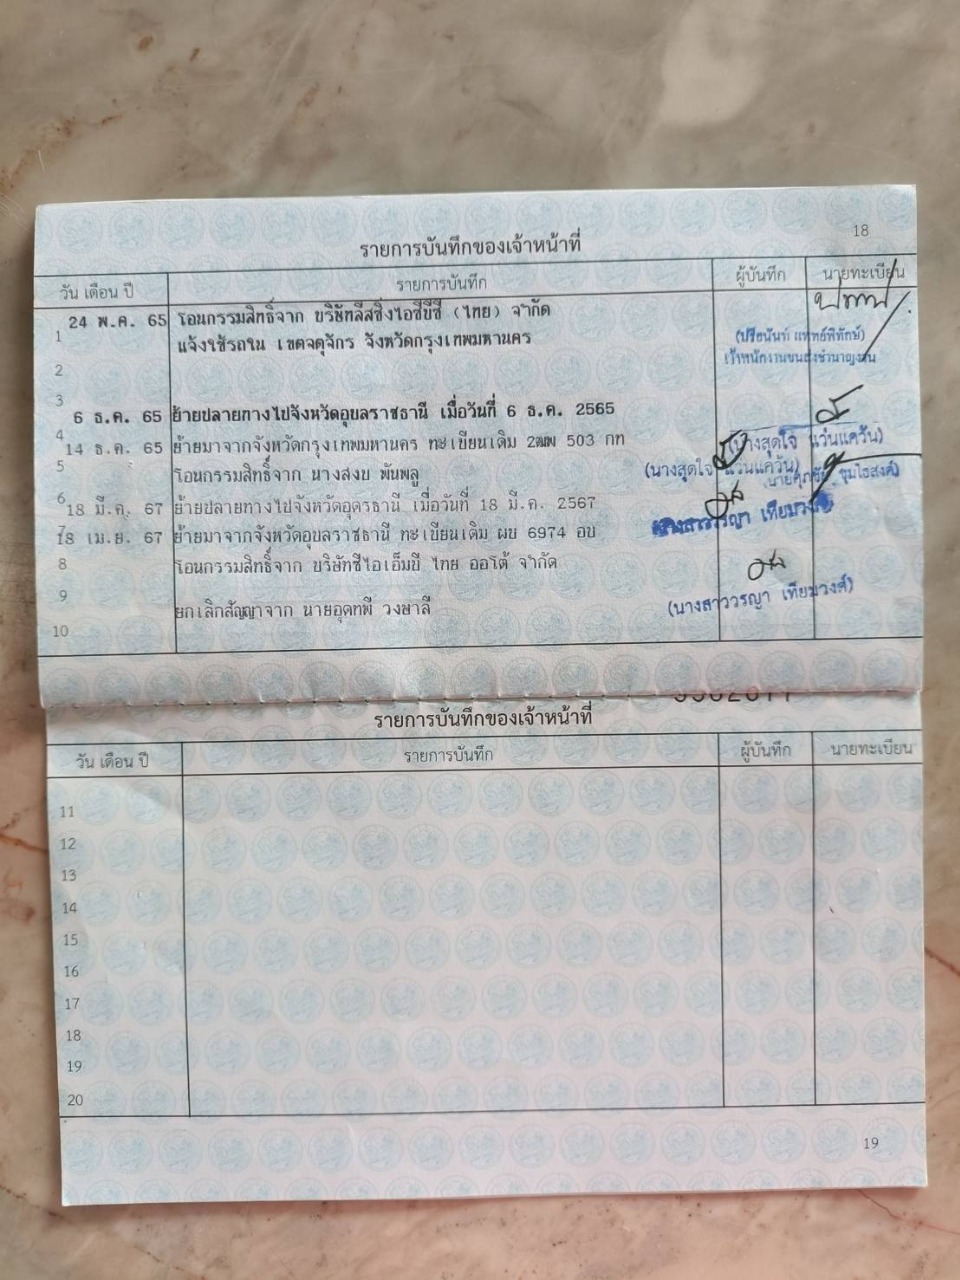 18
รายการบันทึกของเจ้าหน้าที่
วัน เดือน ปี รายการบันทึก ผู้บันทึก นายทะเบียน
1 24 พ.ค. 65 โอนกรรมสิทธิ์จาก บริษัทลีสซิ่งไอซีบีซี (ไทย) จำกัด
แจ้งใช้รถใน เขตจตุจักร จังหวัดกรุงเทพมหานคร
(ปรียนันท์ แพทย์พิทักษ์)
เจ้าพนักงานขนส่งชำนาญงาน
2
3
6 ธ.ค. 65 ย้ายปลายทางไปจังหวัดอุบลราชธานี เมื่อวันที่ 6 ธ.ค. 2565
4
(นางสุดใจ แว่นแคว้น)
14 ธ.ค. 65 ย้ายมาจากจังหวัดกรุงเทพมหานคร ทะเบียนเดิม 2ฒพ 503 กท
5
โอนกรรมสิทธิ์จาก นางสงบ พันพลู
(นางสุดใจ แว่นแคว้น)
6
18 มี.ค. 67 ย้ายปลายทางไปจังหวัดอุดรธานี เมื่อวันที่ 18 มี.ค. 2567
เทียมวงศ์
7
18 เม.ย. 67 ย้ายมาจากจังหวัดอุบลราชธานี ทะเบียนเดิม ผบ 6974 อบ
8 โอนกรรมสิทธิ์จาก บริษัทซีไอเอ็มบี ไทย ออโต้ จำกัด
9
ยกเลิกสัญญาจาก นายอุดทพี วงษาลี
(นางสาววรญา เทียมวงศ์)
10
รายการบันทึกของเจ้าหน้าที่
วัน เดือน ปี รายการบันทึก ผู้บันทึก นายทะเบียน
11
12
13
14
15
16
17
18
19
20
19